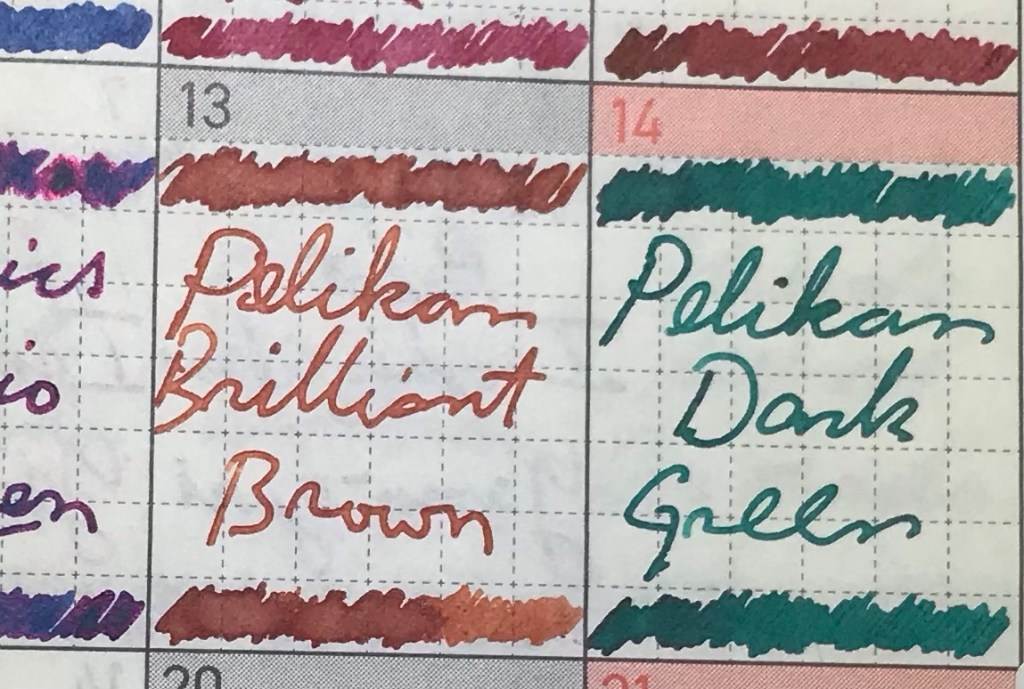 13
14
Pelikan
Brilliant
Brown
Pelikan
Dark
Green
ics
io
en
20
21